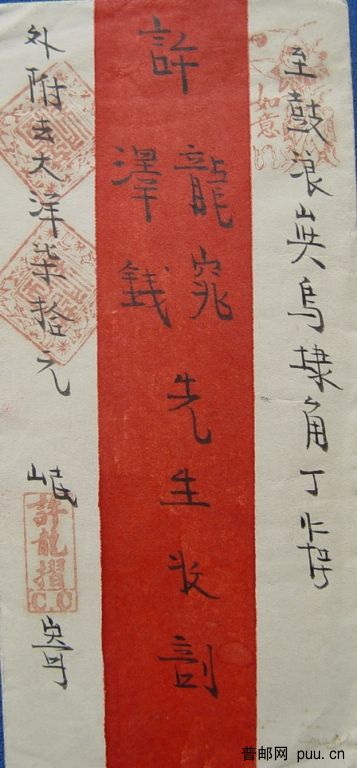 至鼓浪烏埭角丁
如意
許
龍窕
澤錢
先生收剖
外附去大洋柒拾元
岷
許龍摺
C.O
寄
普邮网 puu.cn